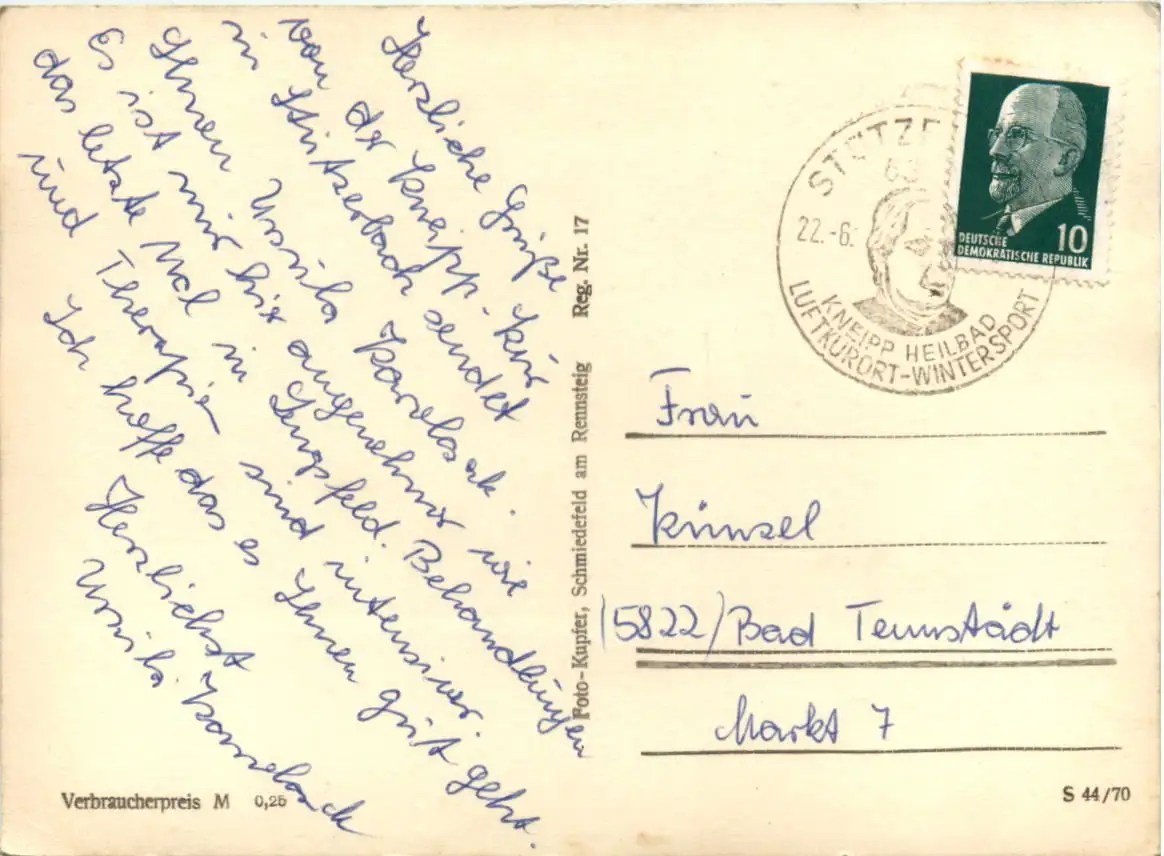 Herzliche Grüße
von der Kneipp-Kur
in Stützerbach sendet
Ihnen Ursula
Es ist mir hier angenehmer wie
das letzte Mal in Lengsfeld. Behandlungen
und Therapien sind intensiver
Ich hoffe das es Ihnen gut geht.
Herzlichst
Ursula
Verbraucherpreis M 0,25
Foto-Kupfer, Schmiedefeld am Rennsteig Reg. Nr. 17
STÜTZE
22.-6.
KNEIPP HEILBAD
LUFTKURORT-WINTERSPORT
DEUTSCHE
DEMOKRATISCHE REPUBLIK
10
Frau
Künzel
(5822) Bad Tennstädt
Markt 7
S 44/70